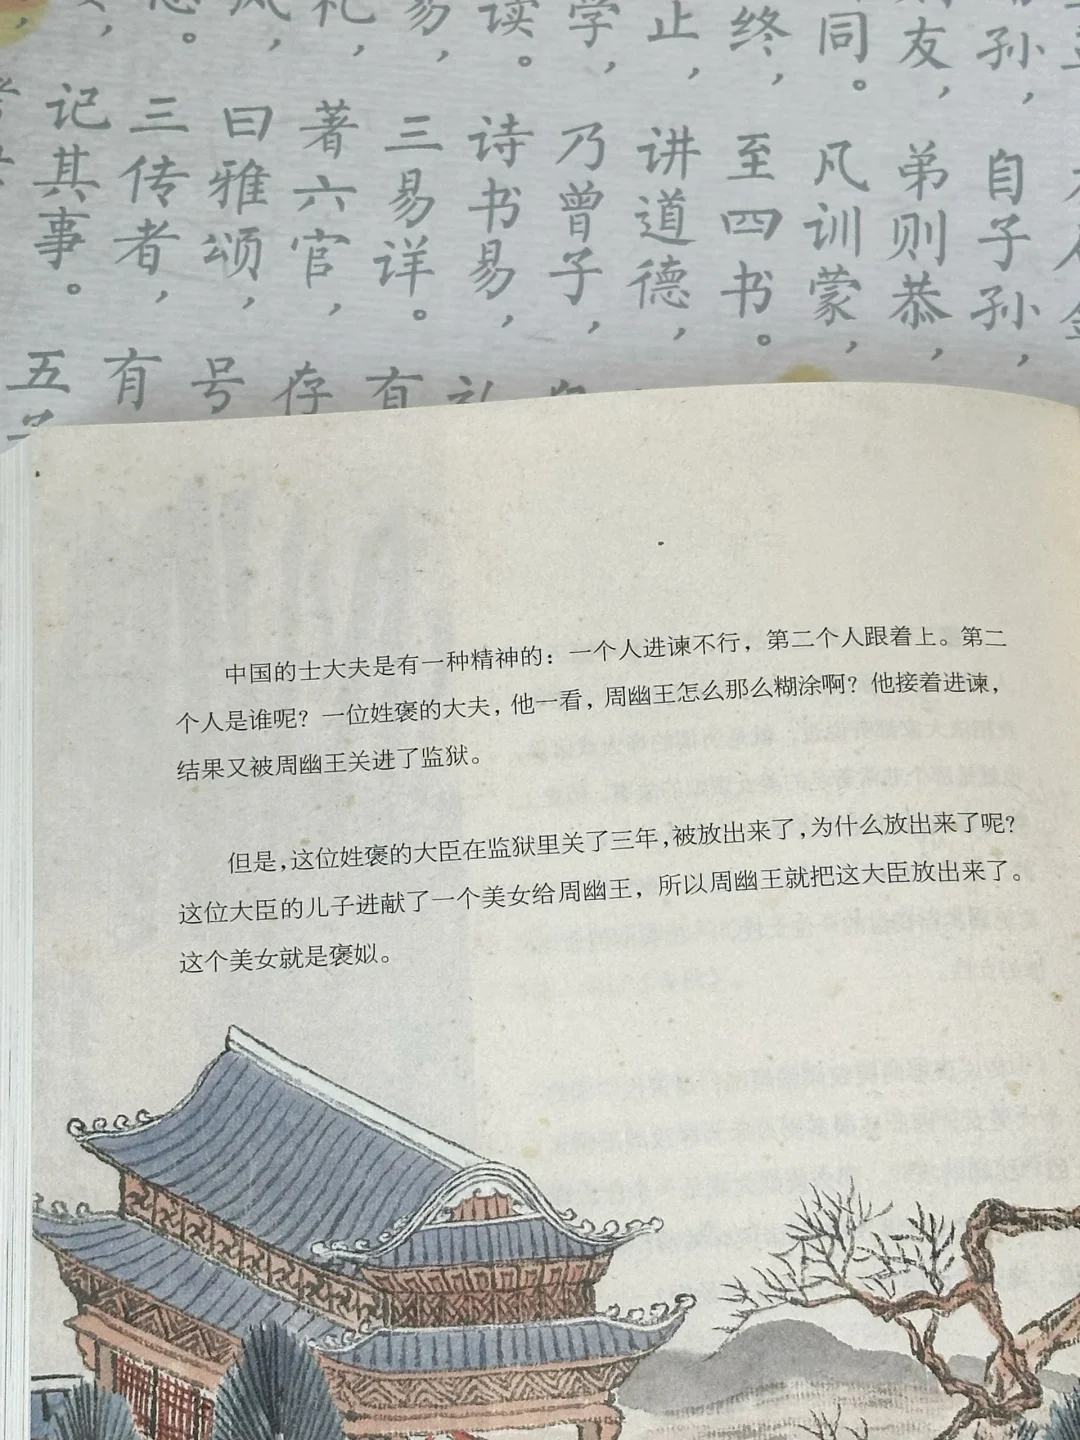 记其事。
三传者，
曰雅颂，
著六官，
三易详。
诗书易，
乃曾子，
讲道德，
至四书。
凡训蒙，
弟则恭，
自子孙，
读。
学，
止，
终，
同。
友，
孙，
五
有
号
存
有
礼
中国的士大夫是有一种精神的：一个人进谏不行，第二个人跟着上。第二
个人是谁呢？一位姓褒的大夫，他一看，周幽王怎么那么糊涂啊？他接着进谏，
结果又被周幽王关进了监狱。
但是，这位姓褒的大臣在监狱里关了三年，被放出来了，为什么放出来了呢？
这位大臣的儿子进献了一个美女给周幽王，所以周幽王就把这大臣放出来了。
这个美女就是褒姒。